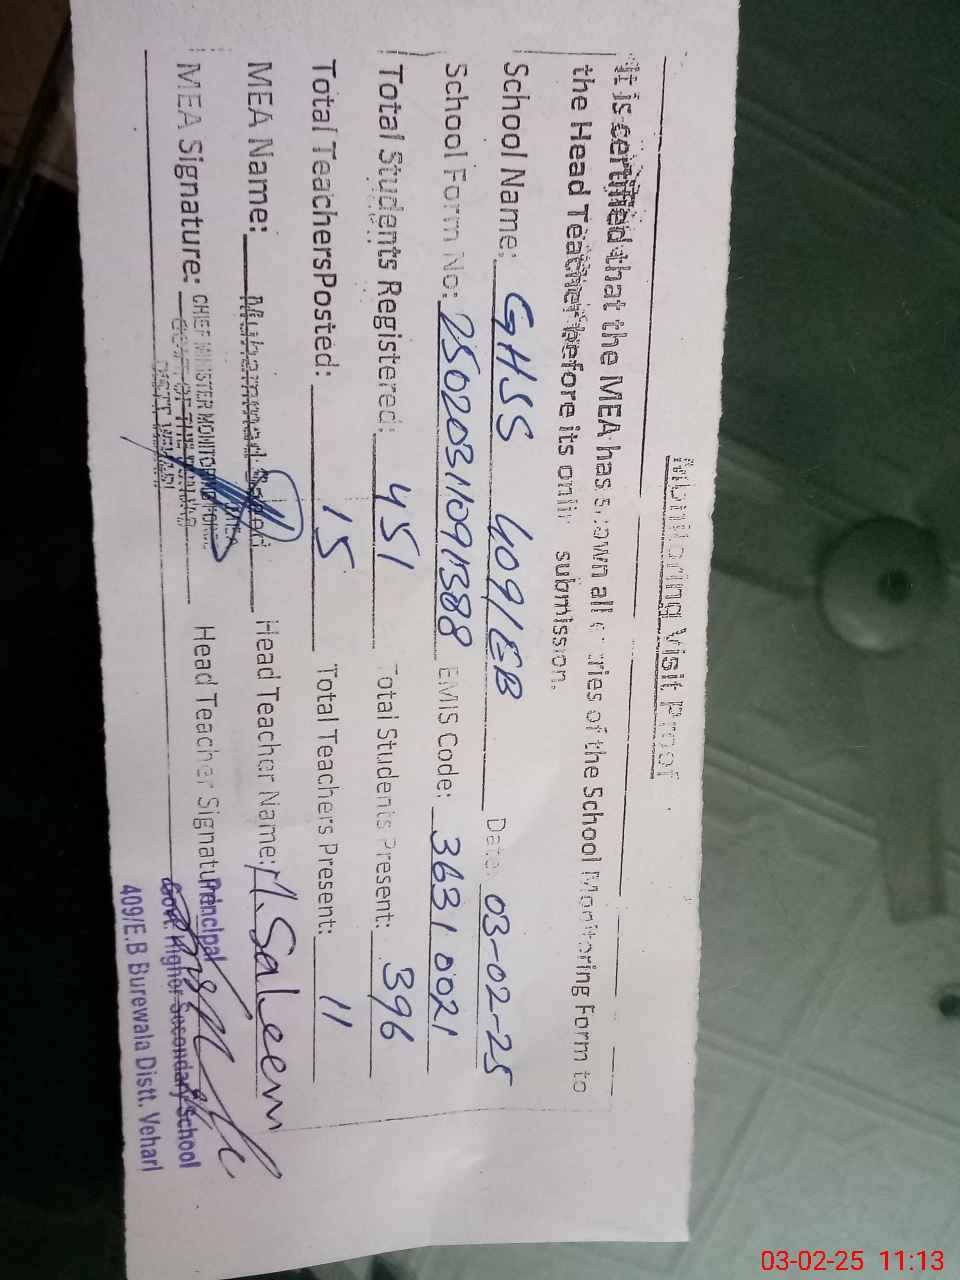 Monitoring Visit Proof
It is certified that the MEA has shown all entries of the School Monitoring Form to
the Head Teacher before its online submission.
School Name: GHSS 409/EB Date: 03-02-25
School Form No: 25020311091388 EMIS Code: 36310021
Total Students Registered: 451 Total Students Present: 396
Total TeachersPosted: 15 Total Teachers Present: 11
MEA Name: Muhammad Head Teacher Name: M. Saleem
MEA Signature: CHIEF MINISTER MONITORING FORCE Head Teacher Signature
DISTT. VEHARI
Principal
Govt. Higher Secondary School
409/E.B Burewala Distt. Vehari
03-02-25 11:13